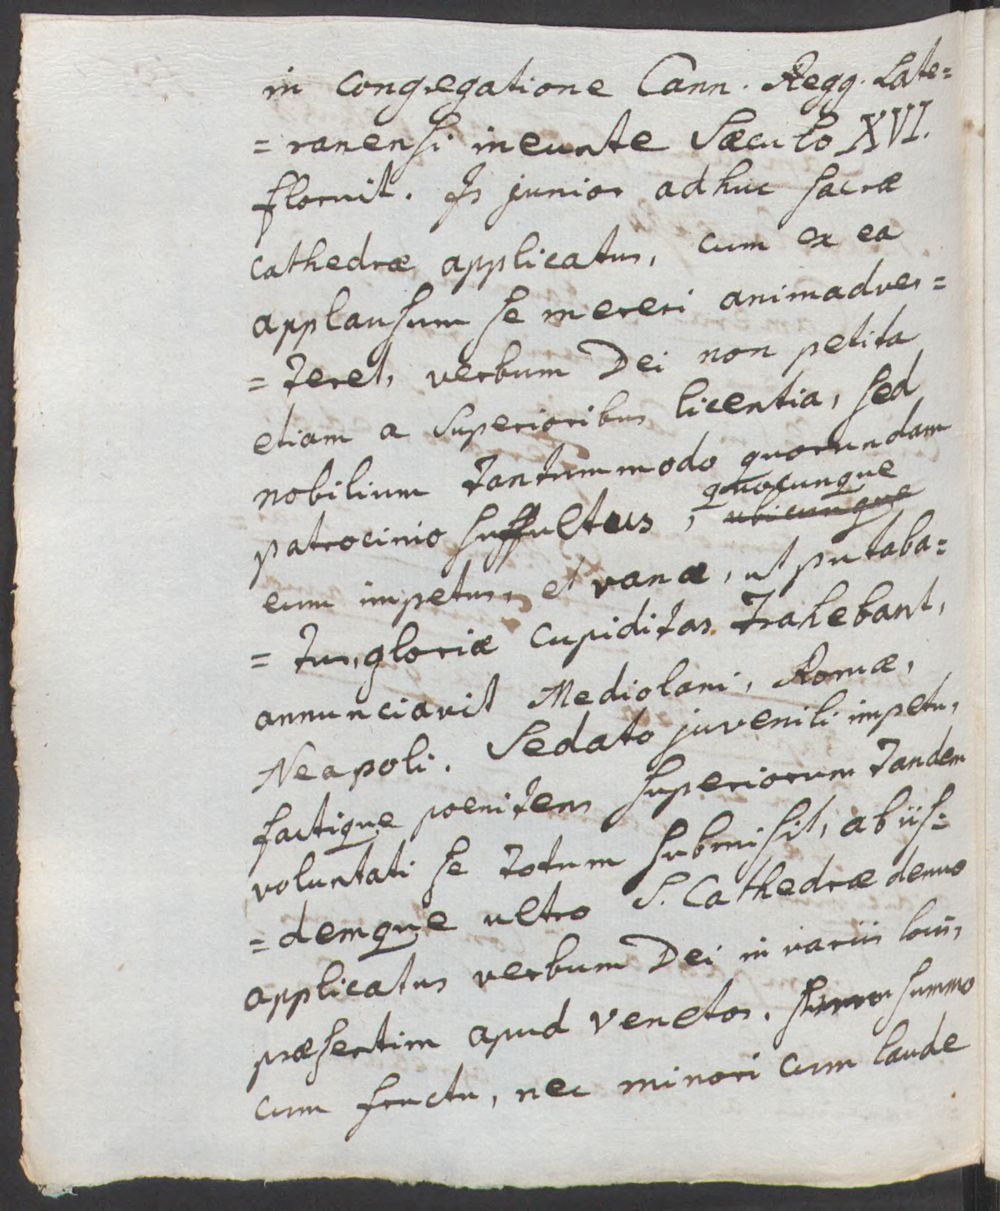 in congregatione Cann. Regg. Late=
=ranensi ineunte Sæculo XVI.
floruit. Is junior adhuc sacræ
cathedræ applicatus, cum ex ea
applausum se mereri animadver=
=teret, verbum Dei non petita
etiam a Superioribus licentia, sed
nobilium tantummodo quorundam
patrocinio suffultus, quocunque
ubicunque
eum impetus, et vanæ, ut putaba=
=tur, gloriæ cupiditas trahebant,
annunciavit Mediolani, Romæ,
Neapoli. Sedato juvenili impetu,
factique poenitens superiorum tandem
voluntati se totum submisit, ab iis=
=demque ultro S. Cathedræ denuo
applicatus verbum Dei in variis locis,
præsertim apud Venetos. summo
cum fructu, nec minori cum laude